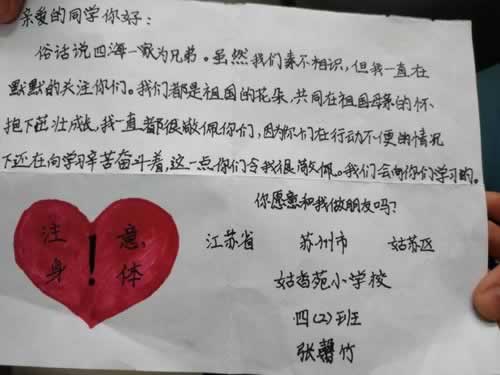 亲爱的同学你好：
俗话说四海一家为兄弟。虽然我们素不相识，但我一直在
默默的关注你们。我们都是祖国的花朵，共同在祖国母亲的怀
抱下茁壮成长，我一直都很敬佩你们，因为你们在行动不便的情况
下还在向学习辛苦奋斗着，这一点你们令我很敬佩。我们会向你们学习的。
你愿意和我做朋友吗？
注意
身！体
江苏省 苏州市 姑苏区
姑香苑小学校
四（2）班
张馨竹